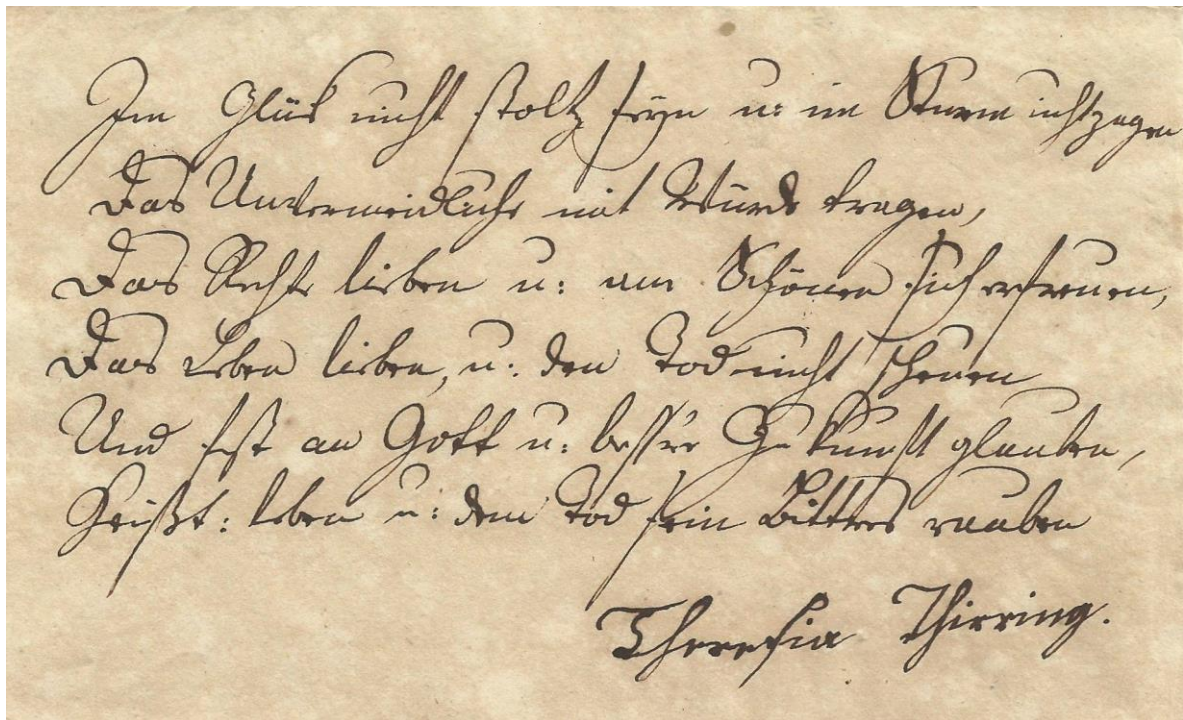 Im Glük nicht stoltz seÿn u: im Sturm nicht zagen
Das Unvermeidliche mit Würde tragen,
Das Rechte lieben u: am Schönen sich erfreuen,
Das Leben lieben, u: den Tod nicht scheuen
Und fest an Gott u: bess're Zukunft glauben,
Heißt: leben u: dem Tod sein Bittres rauben
Theresia Thirring.